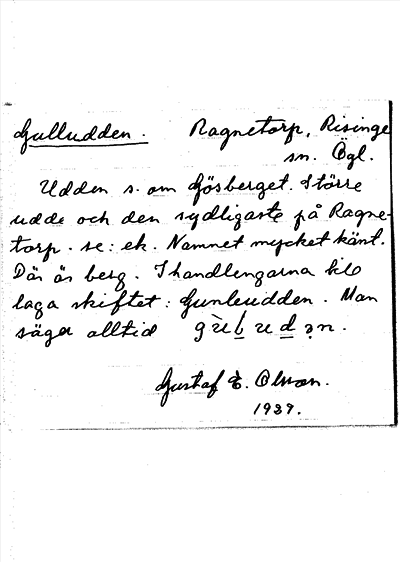 Gulludden. Ragnetorp, Risinge
sn. Ögl.
Udden s. om Gösberget. Större
udde och den sydligaste på Ragne-
torp. se: ek. Namnet mycket känt.
Där äs berg. I handlingarna till
laga skiftet: Gunleudden. Man
säger alltid
Gustaf E. Olsson.
1937.